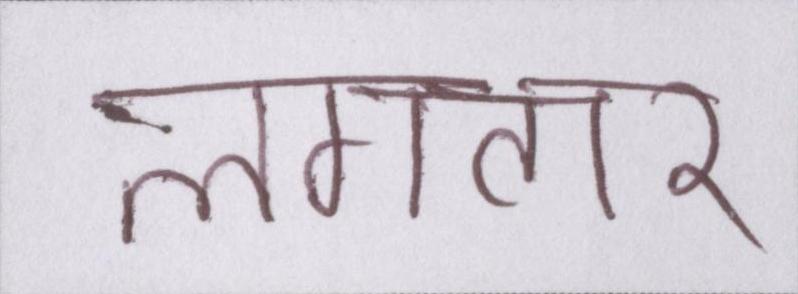 लगतार